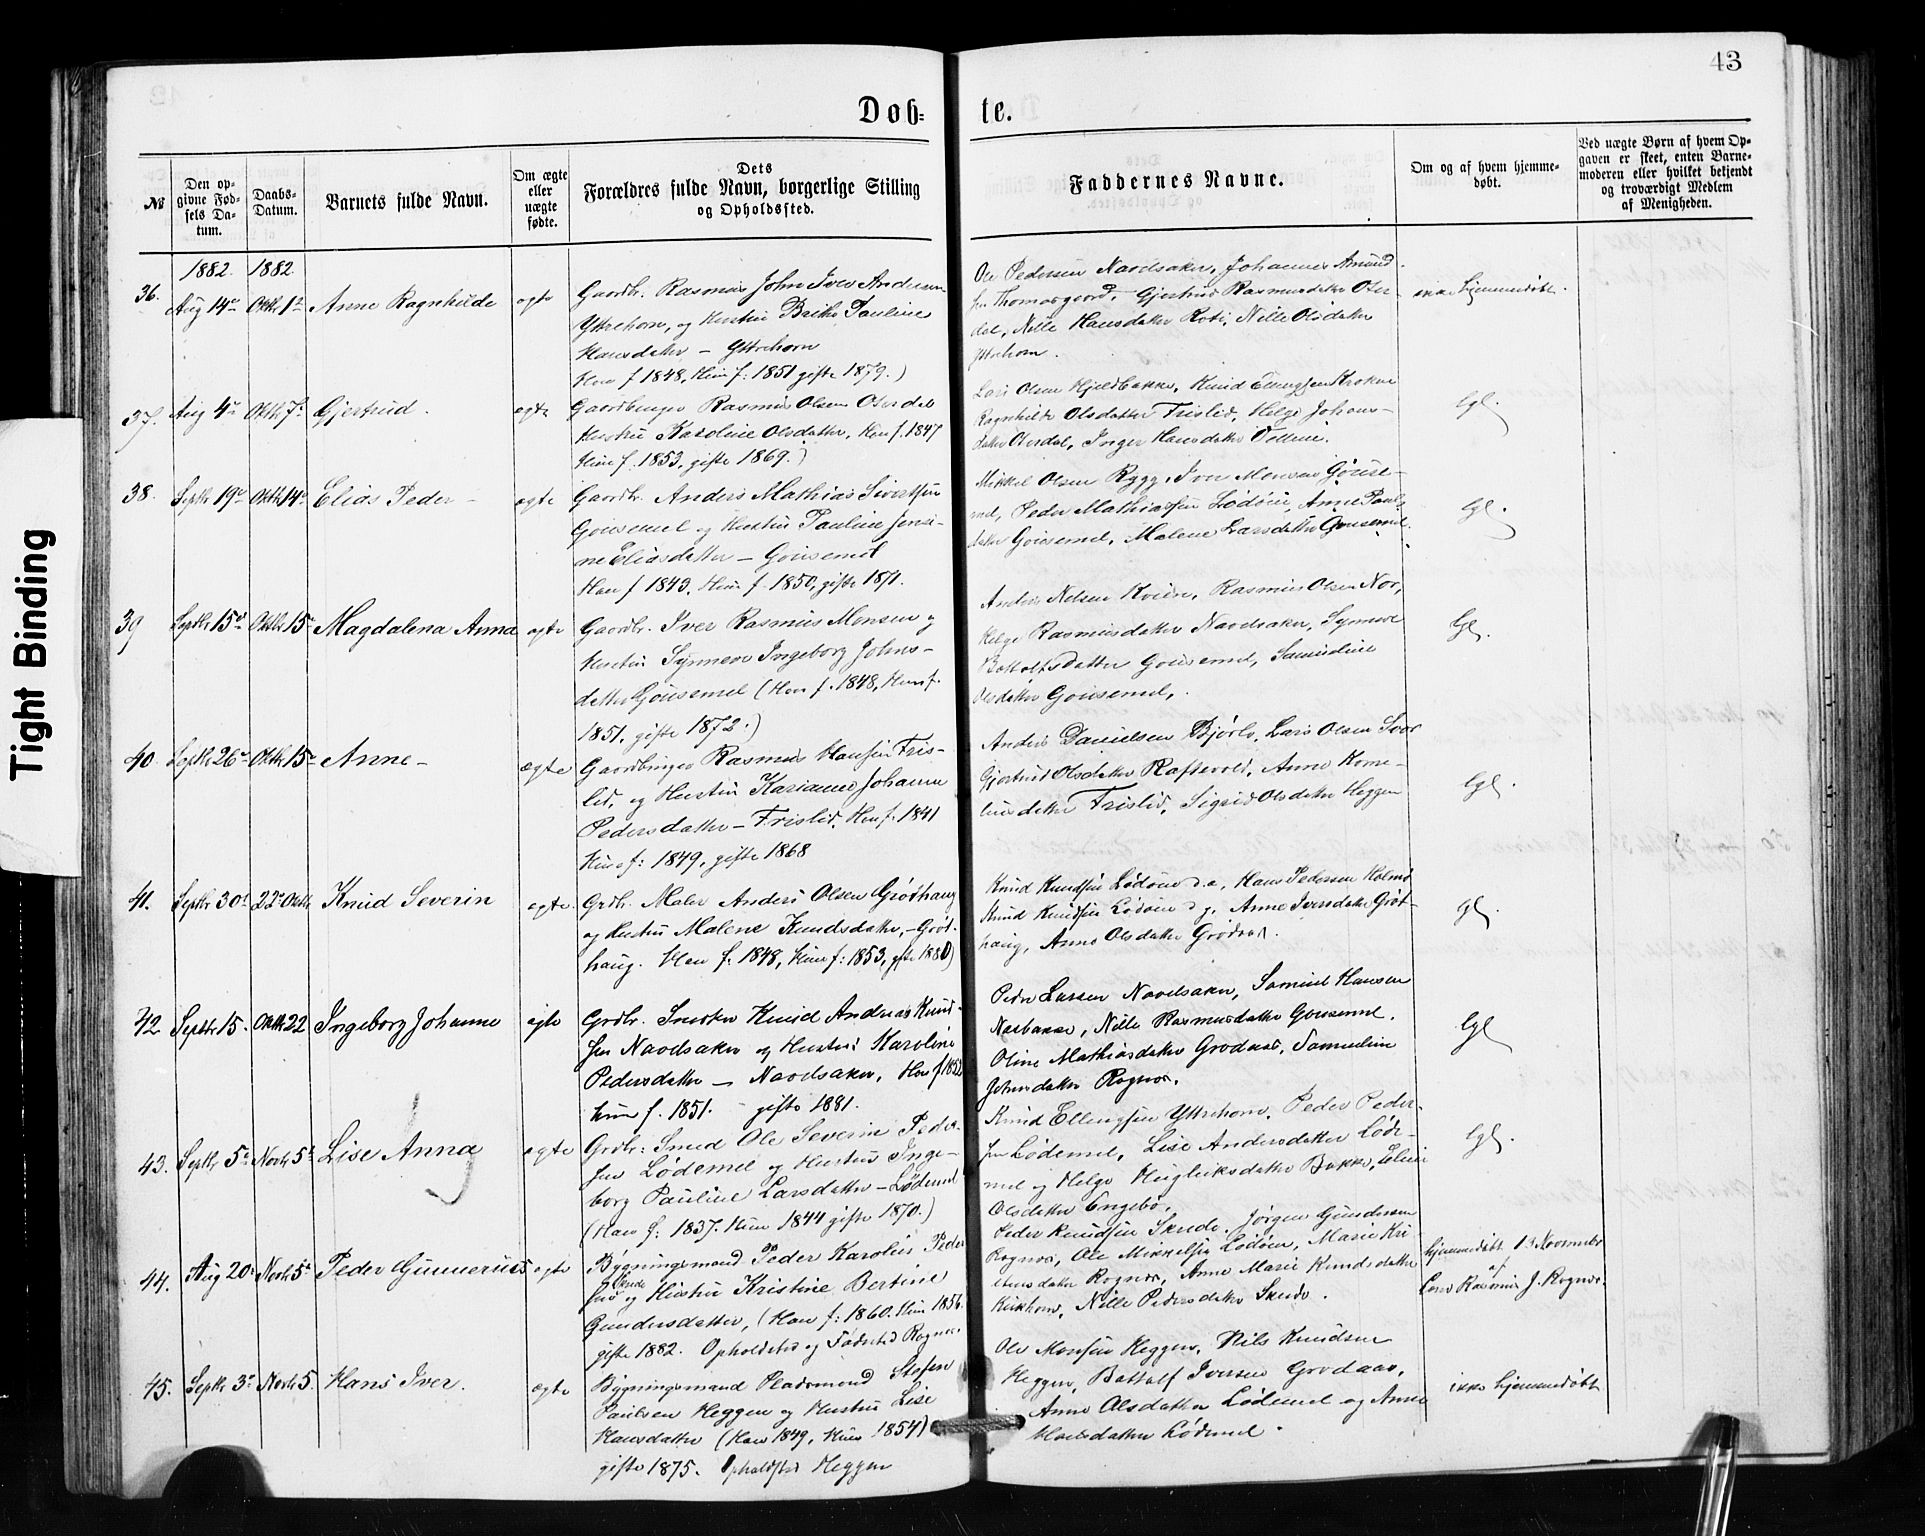 43
Døb- te.
№
Den op-
givne Fød-
sels Da-
tum.
Daabs-
Datum.
Barnets fulde Navn.
Om ægte
eller
uægte
fødte.
Dets
Forældres fulde Navn, borgerlige Stilling
og Opholdssted.
Faddernes Navne.
Om og af hvem hjemme-
døbt.
Ved uægte Børn af hvem Op-
gaven er skeet, enten Barne-
moderen eller hvilket bekjendt
og troværdigt Medlem
af Menigheden.
1882. 1882.
36. Aug 14de Oktbr 1ste Anne Ragnhilde ægte
Gaardbr. Rasmus John Iver Andersen
Yttrehorn, og Hustru Brithe Pauline
Hansdatter – Yttrehorn
Han f 1848, Hun f: 1851 gifte 1879.)
Ole Pedersen Navdsaker, Johannes Amund-
sen Thomasgaard, Gjertrud Rasmusdatter Oter-
dal, Nille Hansdatter Roti, Nille Olsdatter
Yttrehorn.
ikke hjemmedøbt.
37. Aug 4de Oktbr 7de Gjertrud. ægte
Gaardbruger Rasmus Olsen Oterdal
Hustru Karoline Olsdatter, Han f. 1847
Hun f. 1853, gifte 1869.)
Lars Olsen Hjeldbakke, Knud Ellingsen Kroken
Ragnhilde Olsdatter Frislid, Helge Johans-
datter Oterdal, Inger Hansdatter
lgl.
38. Septbr 19de Oktbr 14de Elias Peder – ægte
Gaardbr. Anders Mathias Sivertsen
Gousemel og Hustru Pauline Jensi-
ne Eliasdatter – Gousemel
Han f 1843, Hun f. 1850, gifte 1871.
Mikkel Olsen Rygg, Iver Monsen Gouse-
mel, Peder Mathiassen Lødøen, Anne Pauls-
datter Gousemel, Malene Larsdatter Gousemel.
lgl.
39 Septbr 15de Oktbr 15de Magdalena Anna ægte
Gaardbr. Iver Rasmus Monsen og
Hustru Synneve Ingeborg Johns-
datter Gousemel (Han f. 1848, Hun f.
1851, gifte 1872.)
Anders Nelsen Rasmus Olsen Nor,
Helge Rasmusdatter Navdsaker, Synneve
Battolfsdatter Gousemel, Samueline
Olsdatter Gousemel,.
lgl.
40. Septbr 26de Oktbr 15de Anne – ægte
Gaardbruger Rasmus Hansen Fris-
lid, og Hustru Karianne Johanne
Pedersdatter – Frislid, Han f. 1841
Hun f: 1849, gifte 1868
Anders Danielsen Bjørlo, Lars Olsen
Gjertrud Olsdatter Raftevold, Anne Korne-
liusdatter Frislid, Sigrid Olsdatter Heggen
lgl.
41. Septbr 30te 22de Oktbr Knud Severin ægte
Grdbr. Maler Anders Olsen Grødhaug
og Hustru Malene Knudsdatter, – Grød-
haug. Han f. 1848, Hun f: 1853, gifte 1880)
Knud Knudsen Lødøen d.æ, Hans Pedersen Holmø
Knud Knudsen Lødøen d.y. Anne Iversdatter Grød-
haug, Anne Olsdatter Grodaas.
lgl.
42 Septbr 15. Oktbr 22 Ingeborg Johanne ægte
Grdbr. Snedker Knud Andreas Knud-
sen Navdsaker og Hustru Karoline
Pedersdatter – Navdsaker, Han f 1852
hun f. 1851. – gifte 1881.
Peder Larsen Navdsaker, Samuel Hansen
Nesbakke, Nille Rasmusdatter Gousemel.
Oline Mathiasdatter Grodaas, Samueline
Johnsdatter Rognes.
lgl
43. Septbr 5te Novbr 5te Lise Anna ægte
Grdbr: Smed Ole Severin Peder-
sen Lødemel og Hustru Inge-
borg Pauline Larsdatter – Lødemel
(Han f: 1837. Hun 1844 gifte 1870.)
Knud Ellingsen Yttrehorn, Peder Peder-
sen Lødemel, Lise Andersdatter Løde-
mel og Helge Hugleiksdatter Bakke,
Olsdatter Engebø.
lgl.
44. Aug 20de Novbr 5te Peder Gunnerius ægte
Bygningsmand Peder Karolus Peder-
sen Skrede og Hustru Kristine Bertine
Gundersdatter, (Han f: 1860. Hun 1856.
gifte 1882. Opholdsted og Fødested Rognes.
Peder Knudsen Skrede, Jørgen Gundersen
Rognes, Ole Mikkelsen Lødøen, Marie Kri-
stensdatter Rognes, Anne Marie Knudsdatter
Kirkhorn, Nille Pedersdatter Skrede.
hjemmedøbt 13 November
af
Lars Rasmus J. Rognes.
45. Septbr 3de Novbr 5. Hans Iver. ægte
Bygningsmand Pladsmand Stefen
Paulsen Heggen og Hustru Lise
Hansdatter (Han 1849, Hun 1854)
gifte 1875. Opholdsted Heggen
Ole Monsen Heggen, Nils Knudsen
Heggen, Battalf Iversen Grodaas,
Anne Olsdatter Lødemel og Anne
datter Lødemel.
ikke hjemmedøbt
Tight Binding